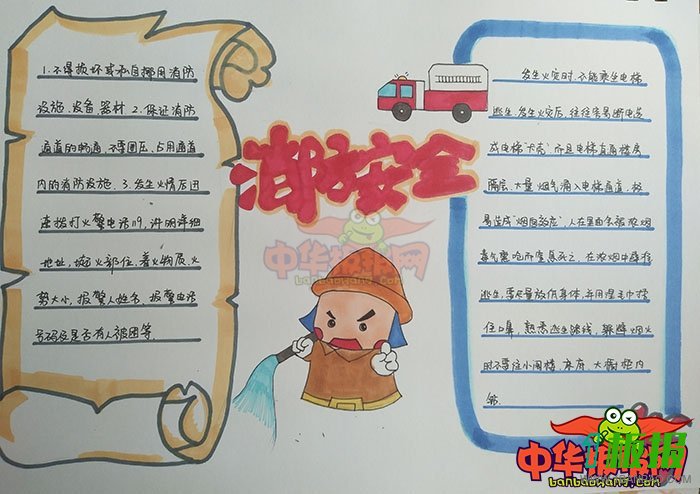 消防安全
1.不得损坏或私自挪用消防
设施、设备、器材 2.保证消防
通道的畅通,不要围压、占用通道
内的消防设施. 3.发生火情后迅
速拨打火警电话119,讲明详细
地址、起火部位、着火物质、火
势大小、报警人姓名、报警电话
号码及是否有人被困等.
发生火灾时,不能乘坐电梯
逃生,发生火灾后,往往容易断电造
成电梯"卡壳",而且电梯直通楼房
隔层,大量烟气涌入电梯通道,极
易造成"烟囱效应",人在里面尔被浓烟
毒气熏呛而窒息死亡,在浓烟中
逃生,要尽量放低身体,并用湿毛巾捂
住口鼻,熟悉逃生路线,躲避烟火
时不要往小阁楼、床底、大橱柜内
中华板报网
banbaowang.com
中华板报网
banbaowang.com
板报